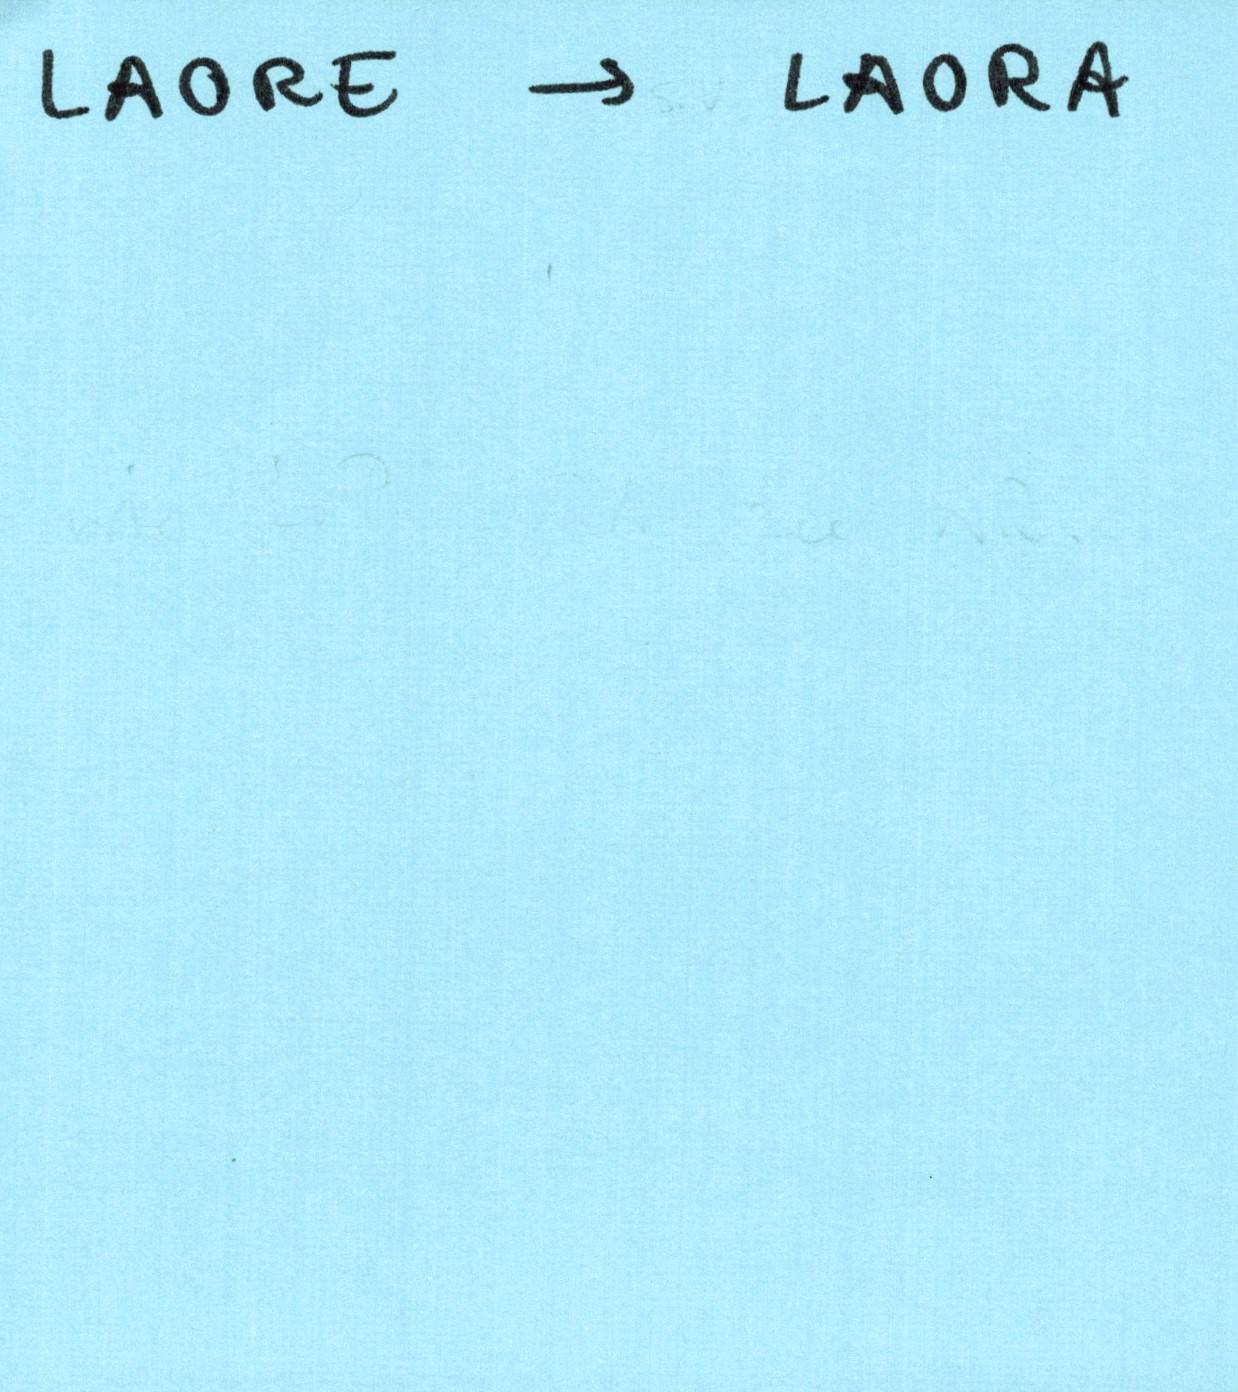 LAORE → LAORA